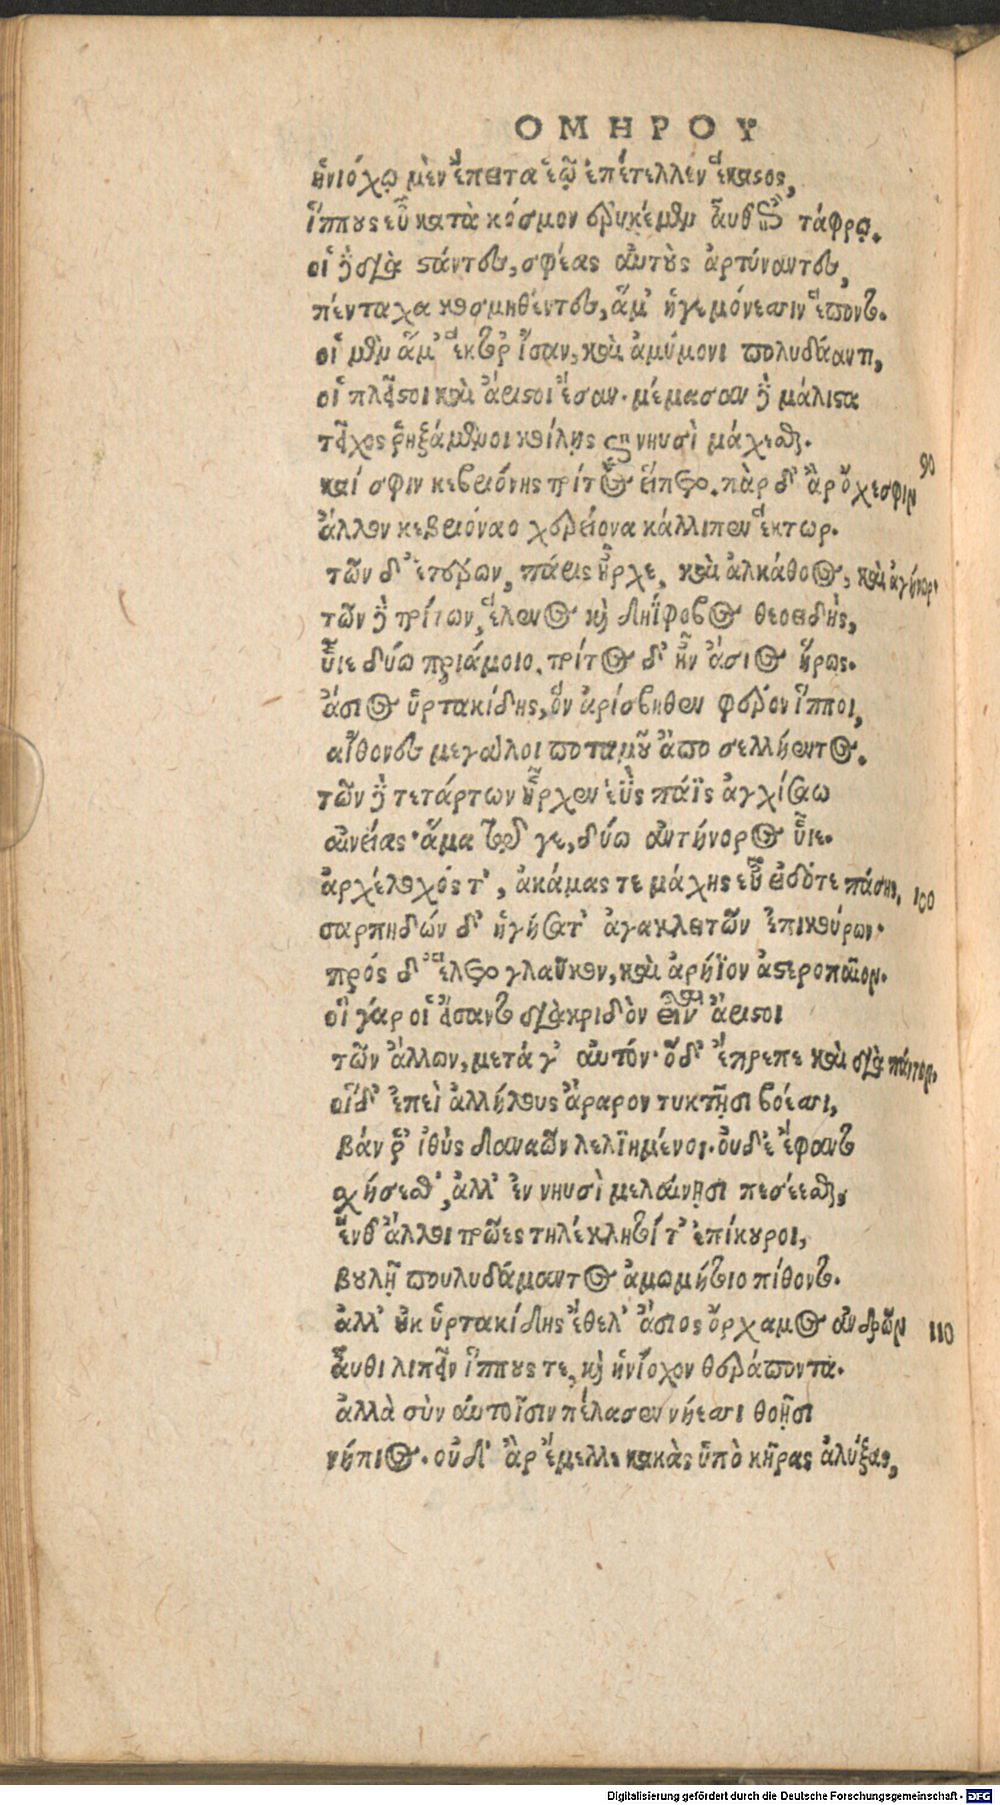 ΟΜΗΡΟΥ
ἡνιόχῳ μὲν ἔπειτα ἑῷ ἐπέτελλεν ἕκαστος,
ἵππους εὖ κατὰ κόσμον ἐρυκέμεν αὖθ' ἐπὶ τάφρῳ.
οἱ δὲ διαστάντες, σφέας αὐτοὺς ἀρτύναντες,
πένταχα κοσμηθέντες, ἅμ' ἡγεμόνεσσιν ἕποντο.
οἱ μὲν ἅμ' ἕκτορ' ἴσαν, καὶ ἀμύμονι πολυδάαντι,
οἳ πλεῖστοι καὶ ἄριστοι ἔσαν. μέμασαν δὲ μάλιστα
τεῖχος ῥηξάμενοι κοίλῃς ἐπὶ νηυσὶ μάχεσθαι.
καί σφιν κεβριόνης τρίτος εἵπετο. πὰρ δ' ἂρ ὄχεσφιν 90
ἄλλον κεβριόναο χερείονα κάλλιπεν ἕκτωρ.
τῶν δ' ἑτέρων, πάρις ἦρχε, καὶ ἀλκάθοος, καὶ ἀγήνωρ.
τῶν δὲ τρίτων, ἕλενος καὶ δηΐφοβος θεοειδὴς,
υἷε δύω πριάμοιο. τρίτος δ' ἦν ἄσιος ἥρως.
ἄσιος ὑρτακίδης, ὃν ἀρίσβηθεν φέρον ἵπποι,
αἴθονες μεγάλοι ποταμοῦ ἄπο σελλήεντος.
τῶν δὲ τετάρτων ἦρχεν ἐῢς πάϊς ἀγχίσαο
αἰνείας· ἅμα τῷ γε, δύω ἀντήνορος υἷε.
ἀρχέλοχός τ', ἀκάμας τε μάχης εὖ εἰδότε πάσης, 100
σαρπηδών δ' ἡγήσατ' ἀγακλειτῶν ἐπικούρων·
πρός δ' ἕλετο γλαῦκον, καὶ ἀρήϊον ἀστεροπαῖον.
οἳ γάρ οἱ εἴσαντο διακριδὸν εἶναι ἄριστοι
τῶν ἄλλων, μετά γ' αὐτόν· ὃ δ' ἔπρεπε καὶ διὰ πάντων.
οἳ δ' ἐπεὶ ἀλλήλους ἄραρον τυκτῇσι βόεσσι,
βάν ῥ' ἰθὺς δαναῶν λελϊημένοι. οὐδ' ἔ' ἔφαντο
σχήσεσθ', ἀλλ' ἐν νηυσὶ μελαίνῃσι πεσέεσθαι,
ἔνθ' ἄλλοι τρῶες τηλέκλητοί τ' ἐπίκουροι,
βουλῇ πουλυδάμαντος ἀμωμήτοιο πίθοντο.
ἀλλ' οὐκ ὑρτακίδης ἔθελ' ἄσιος ὄρχαμος ἀνδρῶν 110
αὖθι λιπεῖν ἵππους τε, καὶ ἡνίοχον θεράποντα.
ἀλλὰ σὺν αὐτοῖσιν πέλασεν νήεσσι θοῇσι
νήπιος. οὐδ' ἂρ ἔμελλε κακὰς ὑπὸ κῆρας ἀλύξας,
Digitalisierung gefördert durch die Deutsche Forschungsgemeinschaft - DFG